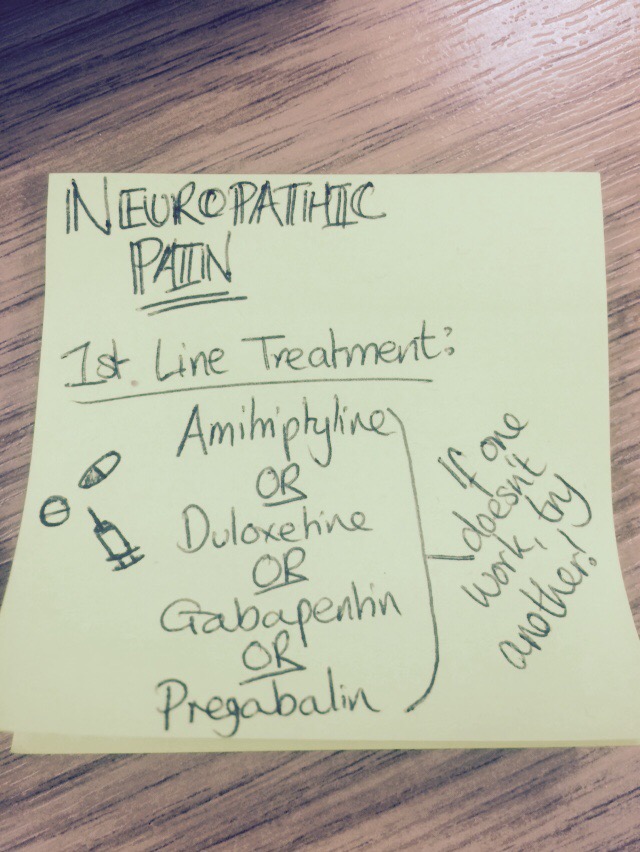 NEUROPATHIC
PAIN
1st Line Treatment:
Amitriptyline
OR
Duloxetine
OR
Gabapentin
OR
Pregabalin
If one
doesn't
work, try
another!